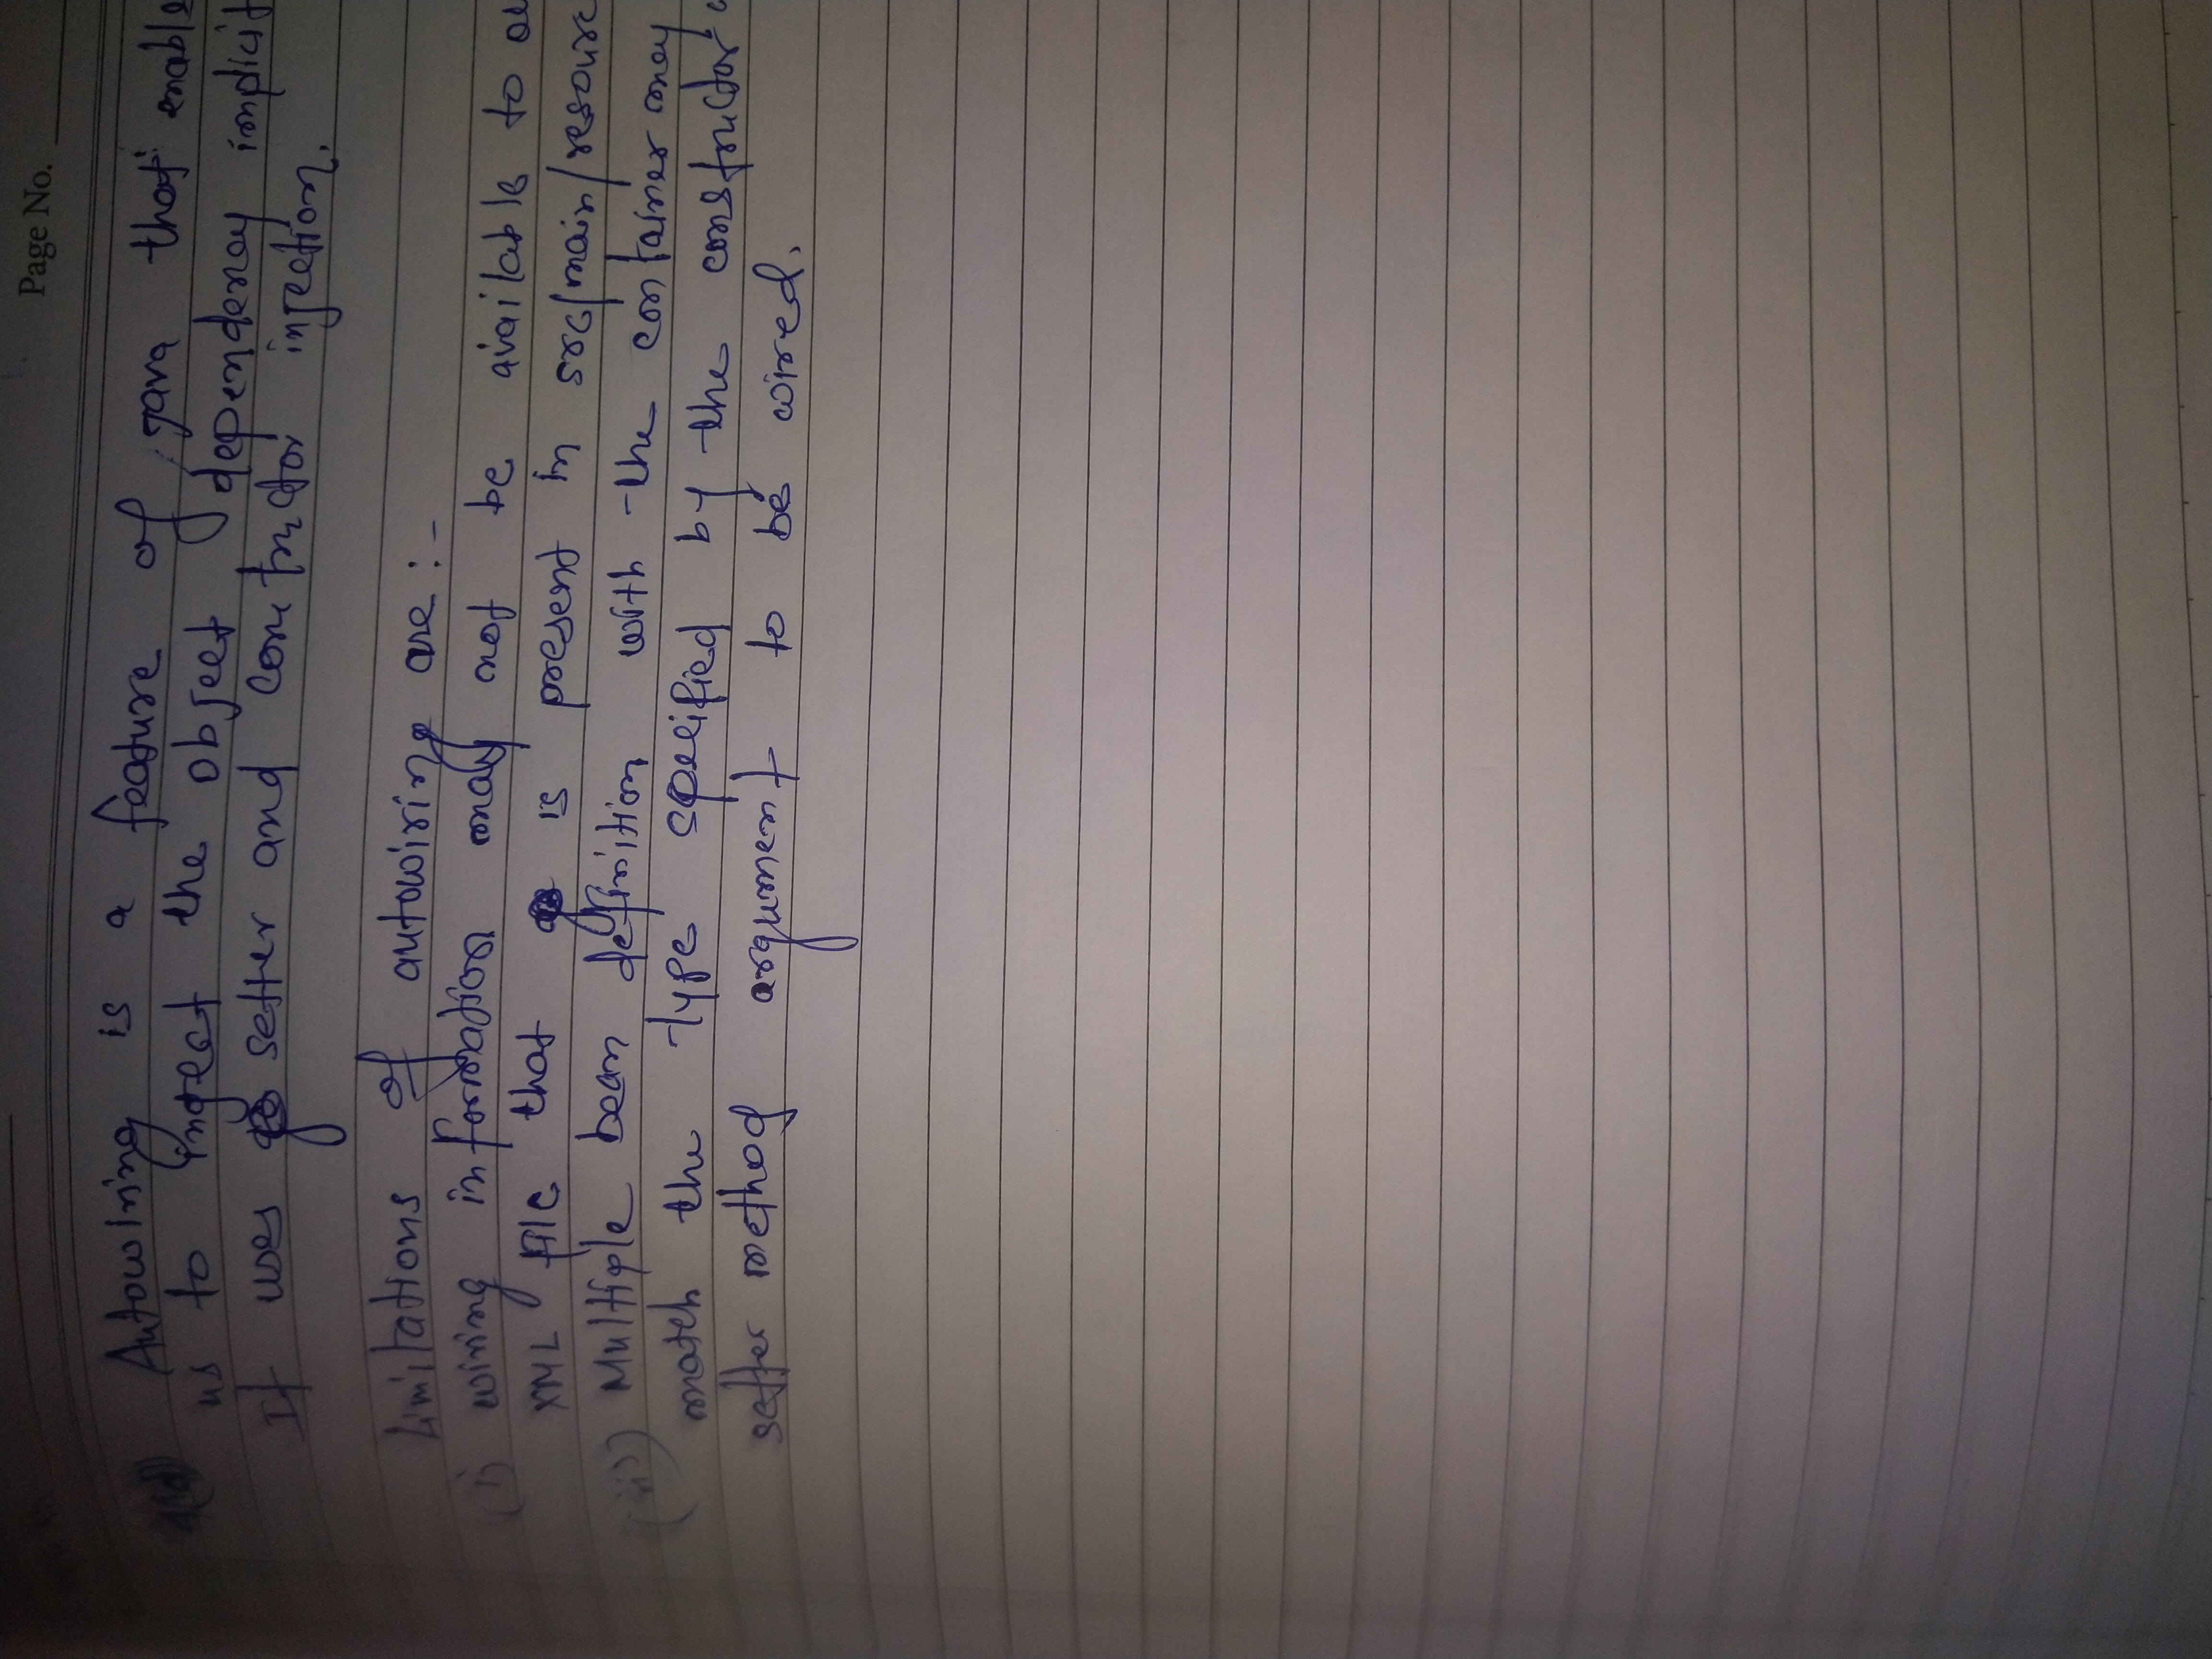 Page No.
Autowiring is a feature of java that enable
us to ingect the object dependency implicit
It uses setter and constructor injection.
Limitations of autowiring are :-
(i) wiring information may not be available to
XML file that is present in src/main/resourc
(ii) Multiple bean definition with the container may
match the type specified by the constructor
setter method argument to be wired.